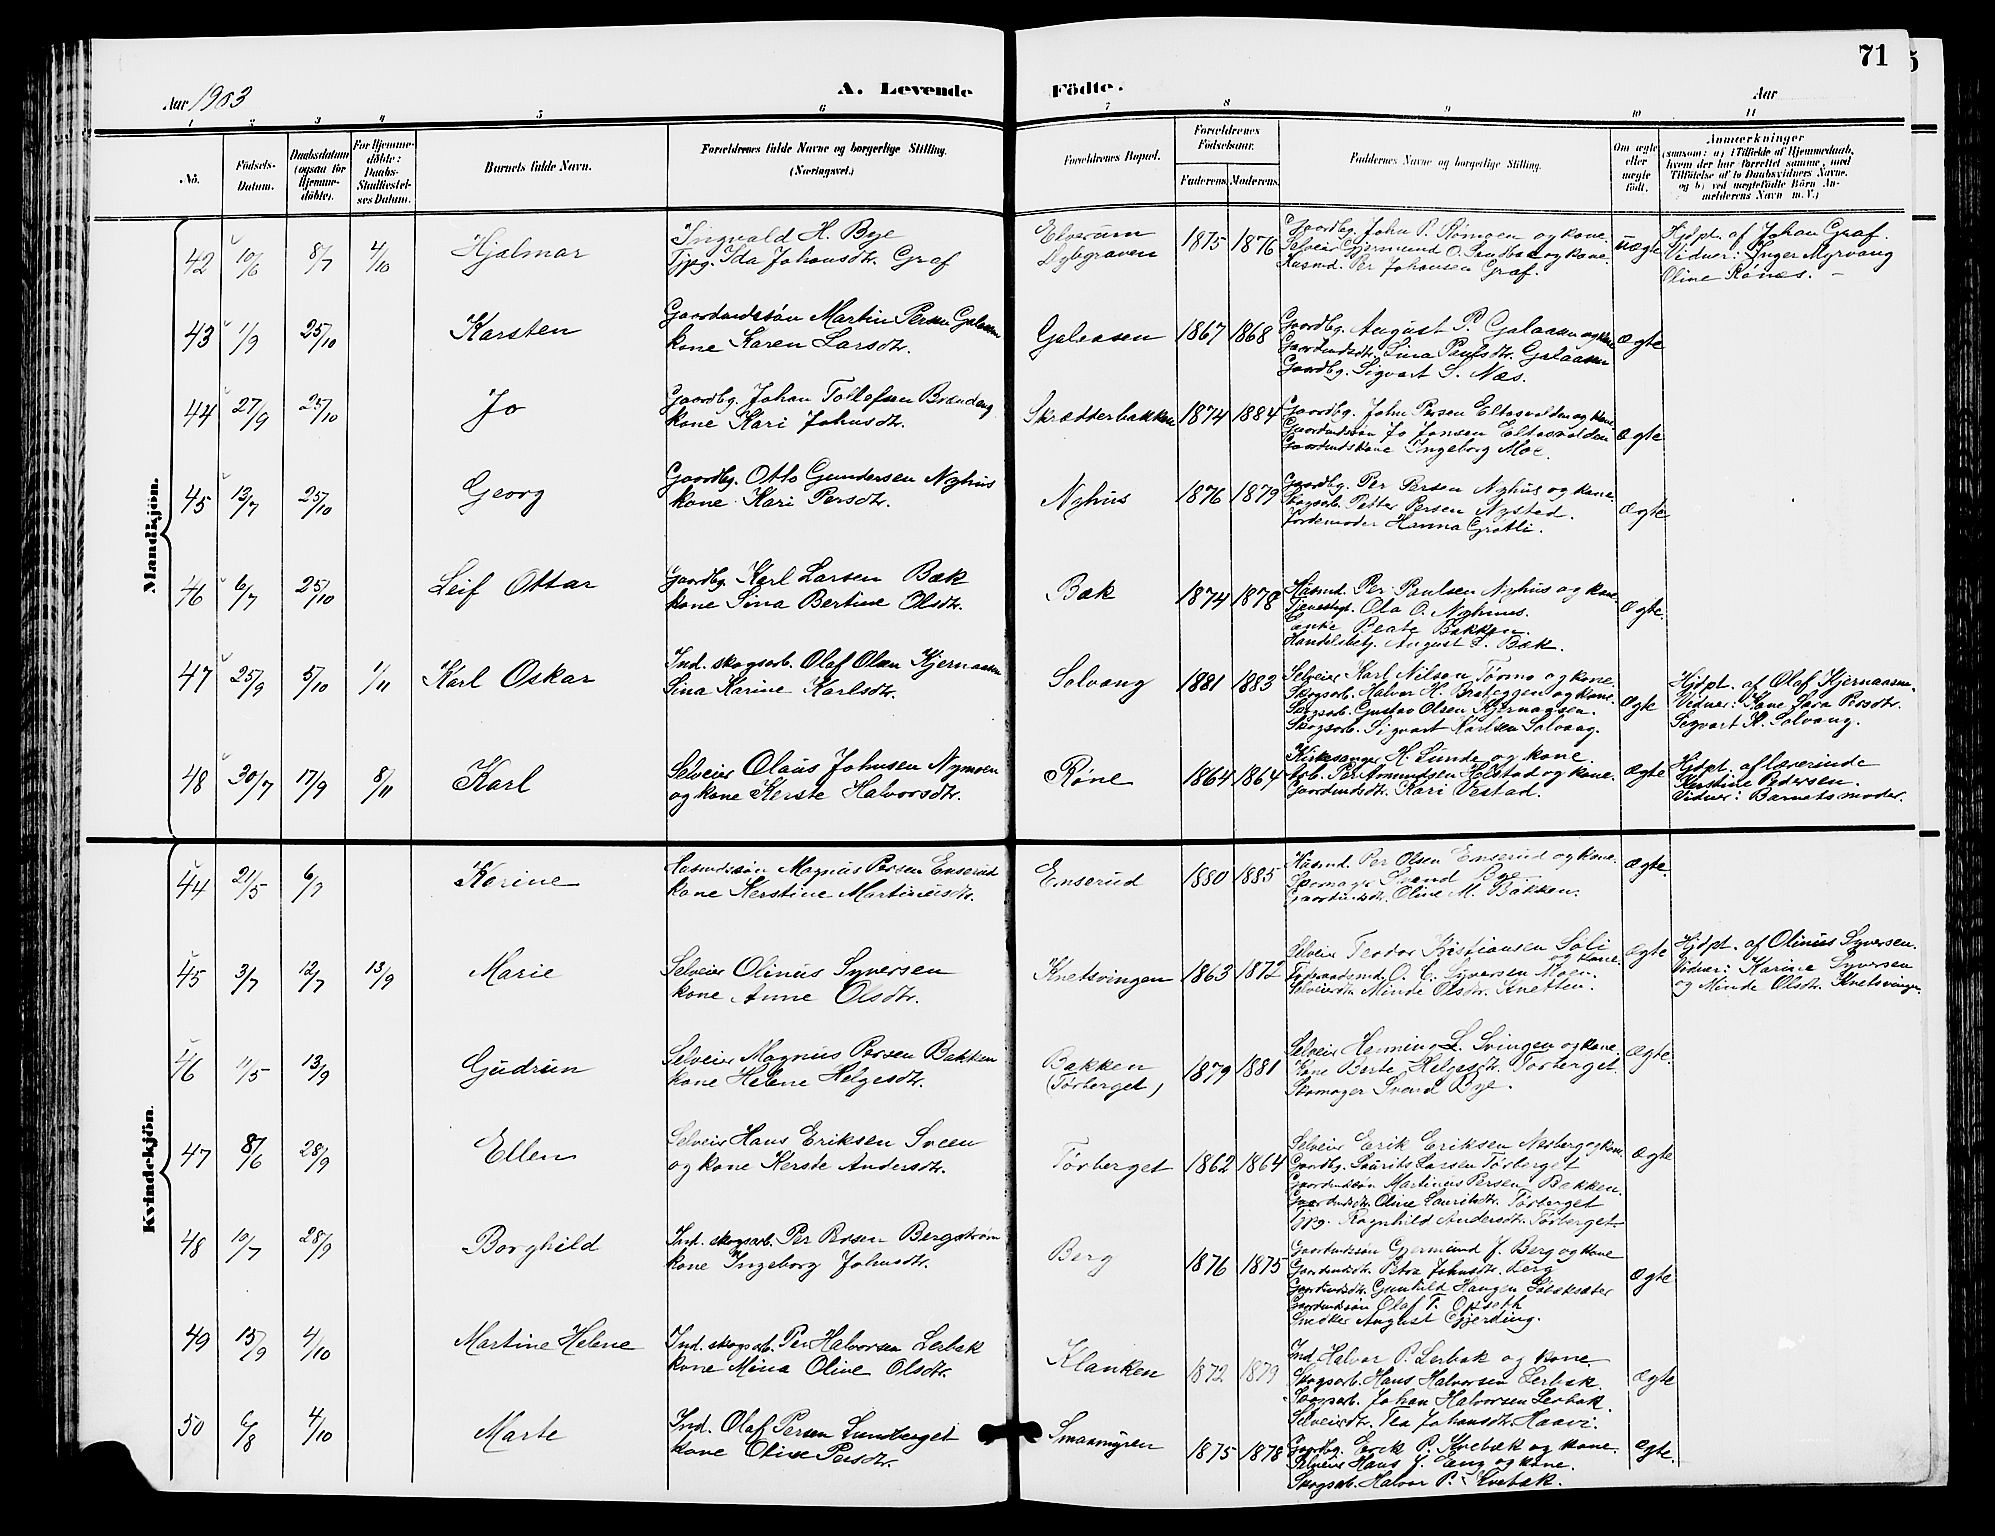 71
Aar 1903
A. Levende
Födte.
Aar
1 2 3 4 5 6 7 8 9 10 11
No.
Födsels-
Datum.
Daabsdatum
(ogsaa for
Hjemme-
döbte).
For Hjemme-
döbte:
Daabs-
Stadfæstel-
ses Datum.
Barnets fulde Navn.
Forældrenes fulde Navne og borgerlige Stilling.
(Næringsvei.)
Forældrenes Bopæl.
Forældrenes
Födselsaar.
Faderens. Moderens.
Faddernes Navne og borgerlige Stilling.
Om ægte
eller
uægte
født.
Anmærkninger
(saasom: a) i Tilfælde af Hjemmedaab,
hvem der har forrettet samme, med
Tilföielse af to Daabsvidners Navne.
og b) ved uægtefödte Börn An-
melderens Navn m.V.)
Mandkjön.
42 10/6 8/7 4/10 Hjalmar
Ingvald H. Bye
Tjpg. Ida Johansdtr. Graf
Elverum
Dybgraven
1875 1876
Gaardbg. John P. Rømoen og kone.
Selveier Gjermund O. Sandbæk og kone.
Husmd. Per Johansen Graf.
uægte
Hjdpt. af Johan Graf.
Vidner: Inger Myrvang
Oline Rønes.
43 1/9 25/10 Karsten
Gaardmdssøn Martin Persen Galaasen
kone Karen Larsdtr.
Galaasen
1867 1868
Gaardbg. August P. Galaasen og kone
Gaardmdsdtr. Lina Paulsdtr. Galaasen
Gaardbg. Sigvart S. Næs.
Ægte
44 27/9 25/10 Jo
Gaardbg. Johan Tollefsen Brændeng
kone Kari Johnsdtr.
Skrædderbakken
1874 1884
Gaardbg. John Persen Eltasvolden og kone.
Gaardmdssøn Jo Jonsen Eltasvolden
Gaardmdskone Ingeborg Moe.
Ægte
45 13/7 25/10 Georg
Gaardbg. Otto Gundersen Nyhus
kone Kari Persdtr.
Nyhus
1876 1879
Gaardbg. Per Persen Nyhus og kone.
Skogsarb. Petter Persen Nystad.
Jordemoder Hanna Grøtli.
Ægte
46 6/7 25/10 Leif Ottar
Gaardbg. Karl Larsen Bæk
kone Sina Bertine Olsdtr.
Bæk
1874 1878
Husmd. Per Paulsen Nyhus og kone.
Tjenestegt. Ola O. Nyhus.
Enke Beate Bakken.
Handelsbetj. August L. Bæk.
Ægte.
47 25/9 5/10 1/11 Karl Oskar
Ind. skogsarb. Olaf Olsen Kjernaasen
Sina Karine Karlsdtr.
Solvang
1881 1883
Selveier Karl Nilsen Tørmo og kone.
Skogsarb. Halvor H. Brateggen og kone.
Skogsarb. Gustav Olsen Kjernaasen.
Skogsarb. Sigvart Karlsen Solvang.
Ægte
Hjdpt. af Olaf Kjernaasen.
Vidner: Kone Sara Persdtr.
Sigvart K. Solvang.
48 20/7 17/9 8/11 Karl
Selveier Olaus Johnsen Nymoen
og kone Kerste Halvorsdtr.
Røne
1864 1864
Kirkesanger H. Sunde og kone.
Arb. Per Amundsen Holstad og kone.
Gaardmdsdtr. Kari Vestad.
Ægte
Hjdpt. af lærerinde
Kerstine Pedersen.
Vidner: Barnets moder.
Kvindekjön.
44 21/5 6/7 Karine
Husmdssøn Magnus Persen Enserud
kone Kerstine Martinusdtr.
Enserud
1880 1885
Husmd. Per Olsen Enserud og kone.
Skomager Svend Bye.
Gaardmdsdtr. Oline M. Bakken.
Ægte.
45 3/7 12/7 13/9 Marie
Selveier Olinus Syversen
kone Anne Olsdtr.
Knetsvingen
1863 1872
Selveier Teodor Kristiansen Søli
og kone.
Føderaadsmd. O. C. Syversen Moen.
Selveierdtr. Minda Olsdtr. Knetten.
Ægte
Hjdpt. af Olinus Syversen.
Vidner: Karine Syversen
og Minda Olsdtr. Knetsvingen.
46 11/5 13/9 Gudrun
Selveier Magnus Persen Bakken
kone Helene Helgesdtr.
Bakken
(Tørberget)
1879 1881
Selveier Henning L. Svingen og kone.
Kone Berte Helgesdtr. Tørberget.
Skomager Svend Bye.
Ægte.
47 8/6 28/9 Ellen
Selveier Hans Eriksen Sveen
og kone Kerste Andersdtr.
Tørberget
1862 1864
Selveier Erik Eriksen Nesberg og kone.
Gaardbg. Laurits Larsen Tørberget
Gaardmdssøn Martinus Persen Bakken.
Gaardmdsdtr. Oline Lauritsdtr. Tørberget
Tjpg. Ragnhild Andersdtr. Tørberget.
Ægte
48 10/7 28/9 Borghild
Ind. skogsarb. Per Persen Bergstrøm
kone Ingeborg Johnsdtr.
Berg
1876 1875
Gaardmdssøn Gjermund J. Berg og kone
Gaardmdsdtr. Petra Johnsdtr. Berg
Gaardmdsdtr. Gunhild Haugen
Gaardmdssøn Olaf T. Opseth
Snedker August Gjerding.
Ægte
49 13/9 4/10 Martine Helene
Ind. skogsarb. Per Halvorsen Lerbak
kone Mina Olive Olsdtr.
Klanken
1872 1879
Ind. Halvor P. Lerbak og kone.
Skogsarb. Hans Halvorsen Lerbak.
Skogsarb. Johan Halvorsen Lerbak.
Selveierdtr. Tea Johansdtr. Haavi.
Ægte
50 6/8 4/10 Marte
Ind. Olaf Persen Lunberget
kone Olive Persdtr.
Smaamyren
1875 1878
Gaardbg. Erik P. Kvebæk og kone.
Selveier Hans J. Eng og kone.
Skogsarb. Halvor P. Kvebæk.
Ægte.